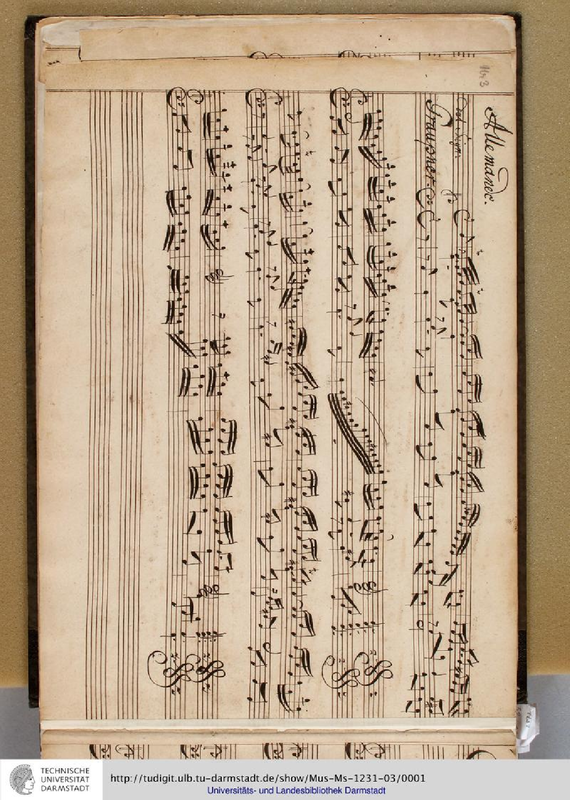 Allemande.
Del Sigr.
Graupner.
TECHNISCHE
UNIVERSITÄT
DARMSTADT
http://tudigit.ulb.tu-darmstadt.de/show/Mus-Ms-1231-03/0001
Universitäts- und Landesbibliothek Darmstadt